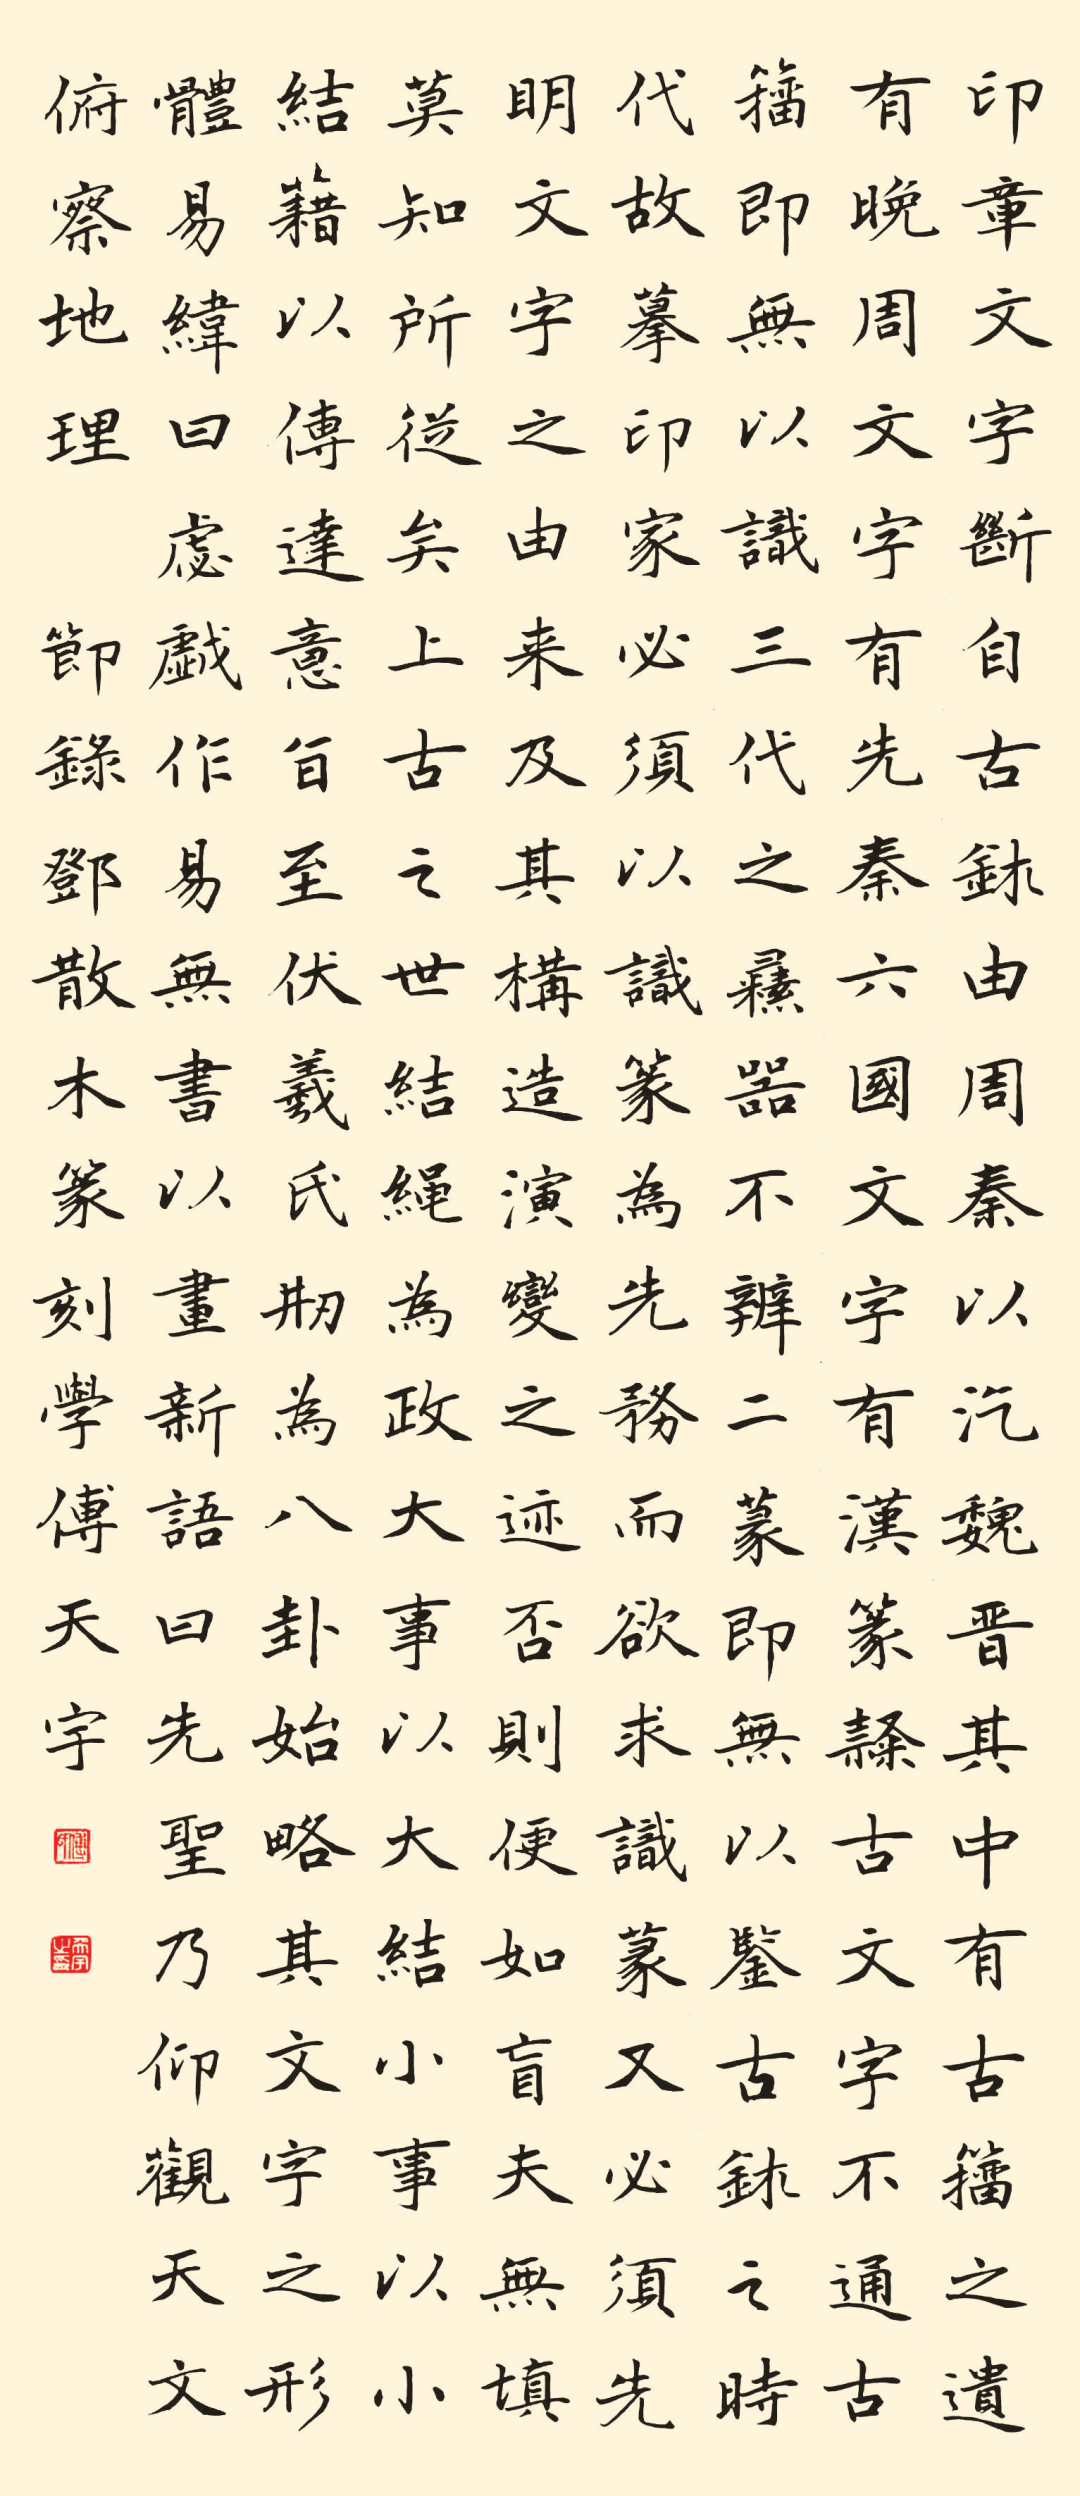 印章文字斷自古鉥由周秦以汔魏晋其中有古籀之遺
有晚周文字有先秦六國文字有漢篆隸古文字不通古
籀即無以識三代之彝器不辨二篆即無以鑒古鉥之時
代故摹印家必須以識篆為先務而欲求識篆又必須先
明文字之由来及其構造演變之迹否則便如盲夫無填
莫知所從矣上古之世結繩為政大事以大結小事以小
結藉以傳達意旨至伏羲氏刱為八卦始略其文字之形
體易緯曰虙戲作易無書以畫新語曰先聖乃仰觀天文
俯察地理 節錄鄧散木篆刻學傅天宇